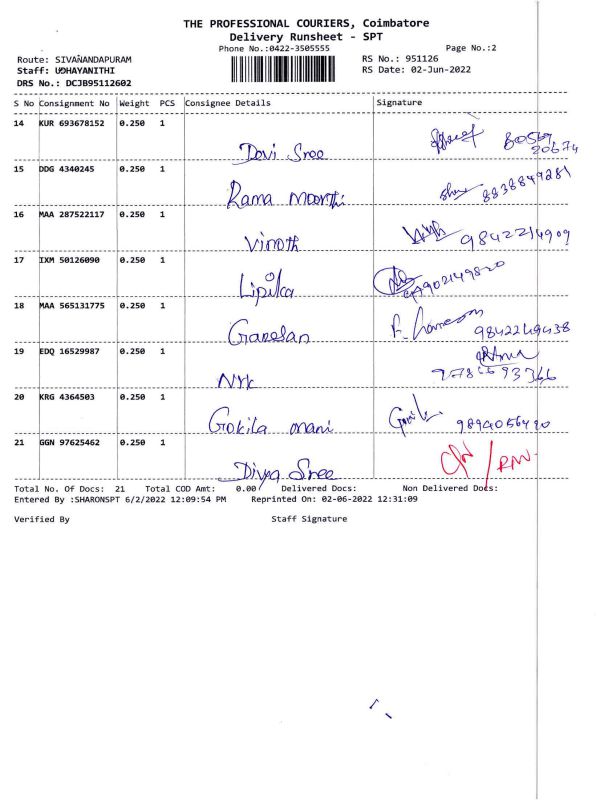 THE PROFESSIONAL COURIERS, Coimbatore
Delivery Runsheet - SPT
Phone No.:0422-3505555 Page No.:2
Route: SIVANANDAPURAM RS No.: 951126
Staff: UDHAYANITHI RS Date: 02-Jun-2022
DRS No.: DCJB95112602
S No Consignment No Weight PCS Consignee Details Signature
14 KUR 693678152 0.250 1
Devi Sree 80569
30674
15 DDG 4340245 0.250 1
Rama Moorthi 8838849281
16 MAA 287522117 0.250 1
Vinoth 9842214909
17 IXM 50126090 0.250 1
Lipika
18 MAA 565131775 0.250 1
Ganesan 9842249438
19 EDQ 16529987 0.250 1
20 KRG 4364503 0.250 1
Gokila mani 9894056490
21 GGN 97625462 0.250 1
Divya Sree
Total No. Of Docs: 21 Total COD Amt: 0.00 Delivered Docs: Non Delivered Docs:
Entered By :SHARONSPT 6/2/2022 12:09:54 PM Reprinted On: 02-06-2022 12:31:09
Verified By Staff Signature